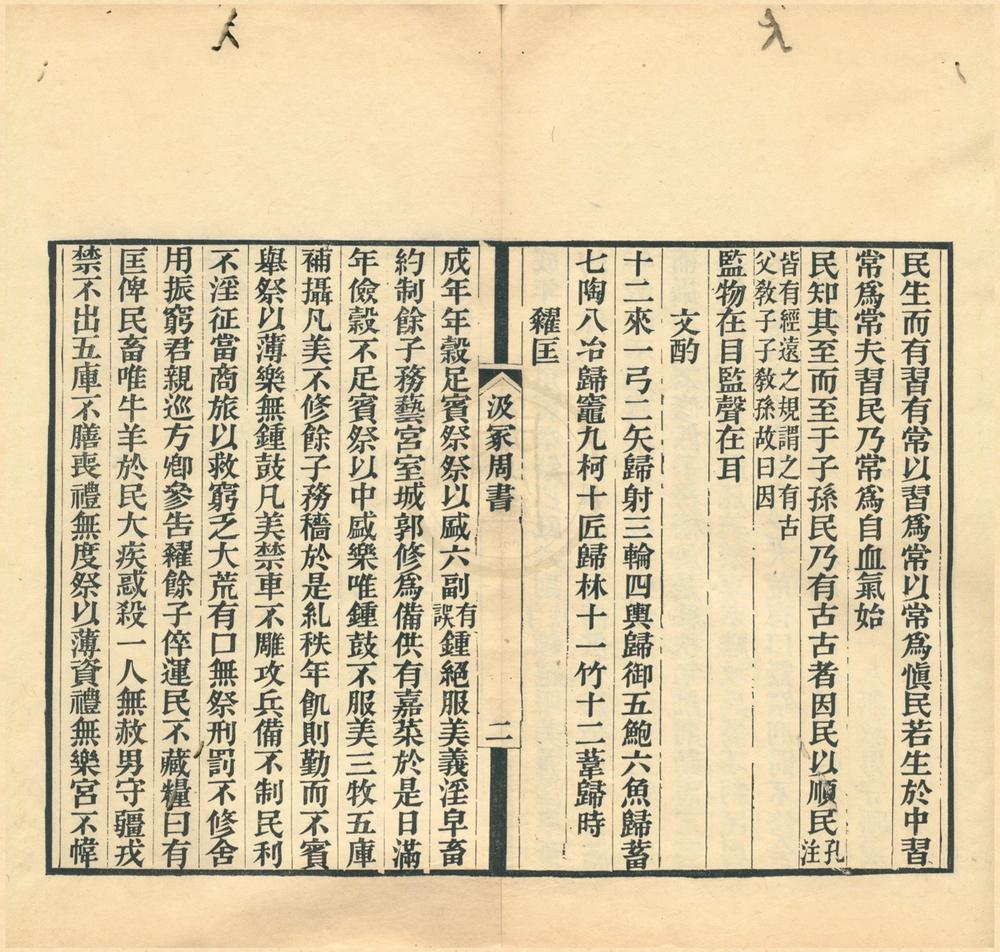 民生而有習有常以習爲常以常爲愼民若生於中習
常爲常夫習民乃常爲自血氣始
民知其至而至于子孫民乃有古古者因民以順民孔注
皆有經遠之規謂之有古
父敎子子敎孫故曰因
監物在目監聲在耳
文酌
十二來一弓二矢歸射三輪四輿歸御五鮑六魚歸蓄
七陶八冶歸竈九柯十匠歸林十一竹十二葦歸時
糴匡
汲冢周書
二
成年年穀足賓祭祭以盛六副有誤鍾絕服美義淫皁畜
約制餘子務藝宮室城郭修爲備供有嘉菜於是日滿
年儉穀不足賓祭以中盛樂唯鍾鼓不服美三牧五庫
補攝凡美不修餘子務穡於是糺秩年飢則勤而不賓
舉祭以薄樂無鍾鼓凡美禁車不雕攻兵備不制民利
不淫征當商旅以救窮乏大荒有口無祭刑罰不修舍
用振窮君親巡方卿參告糴餘子倅運民不藏糧曰有
匡俾民畜唯牛羊於民大疾惑殺一人無赦男守疆戎
禁不出五庫不膳喪禮無度祭以薄資禮無樂宮不幃